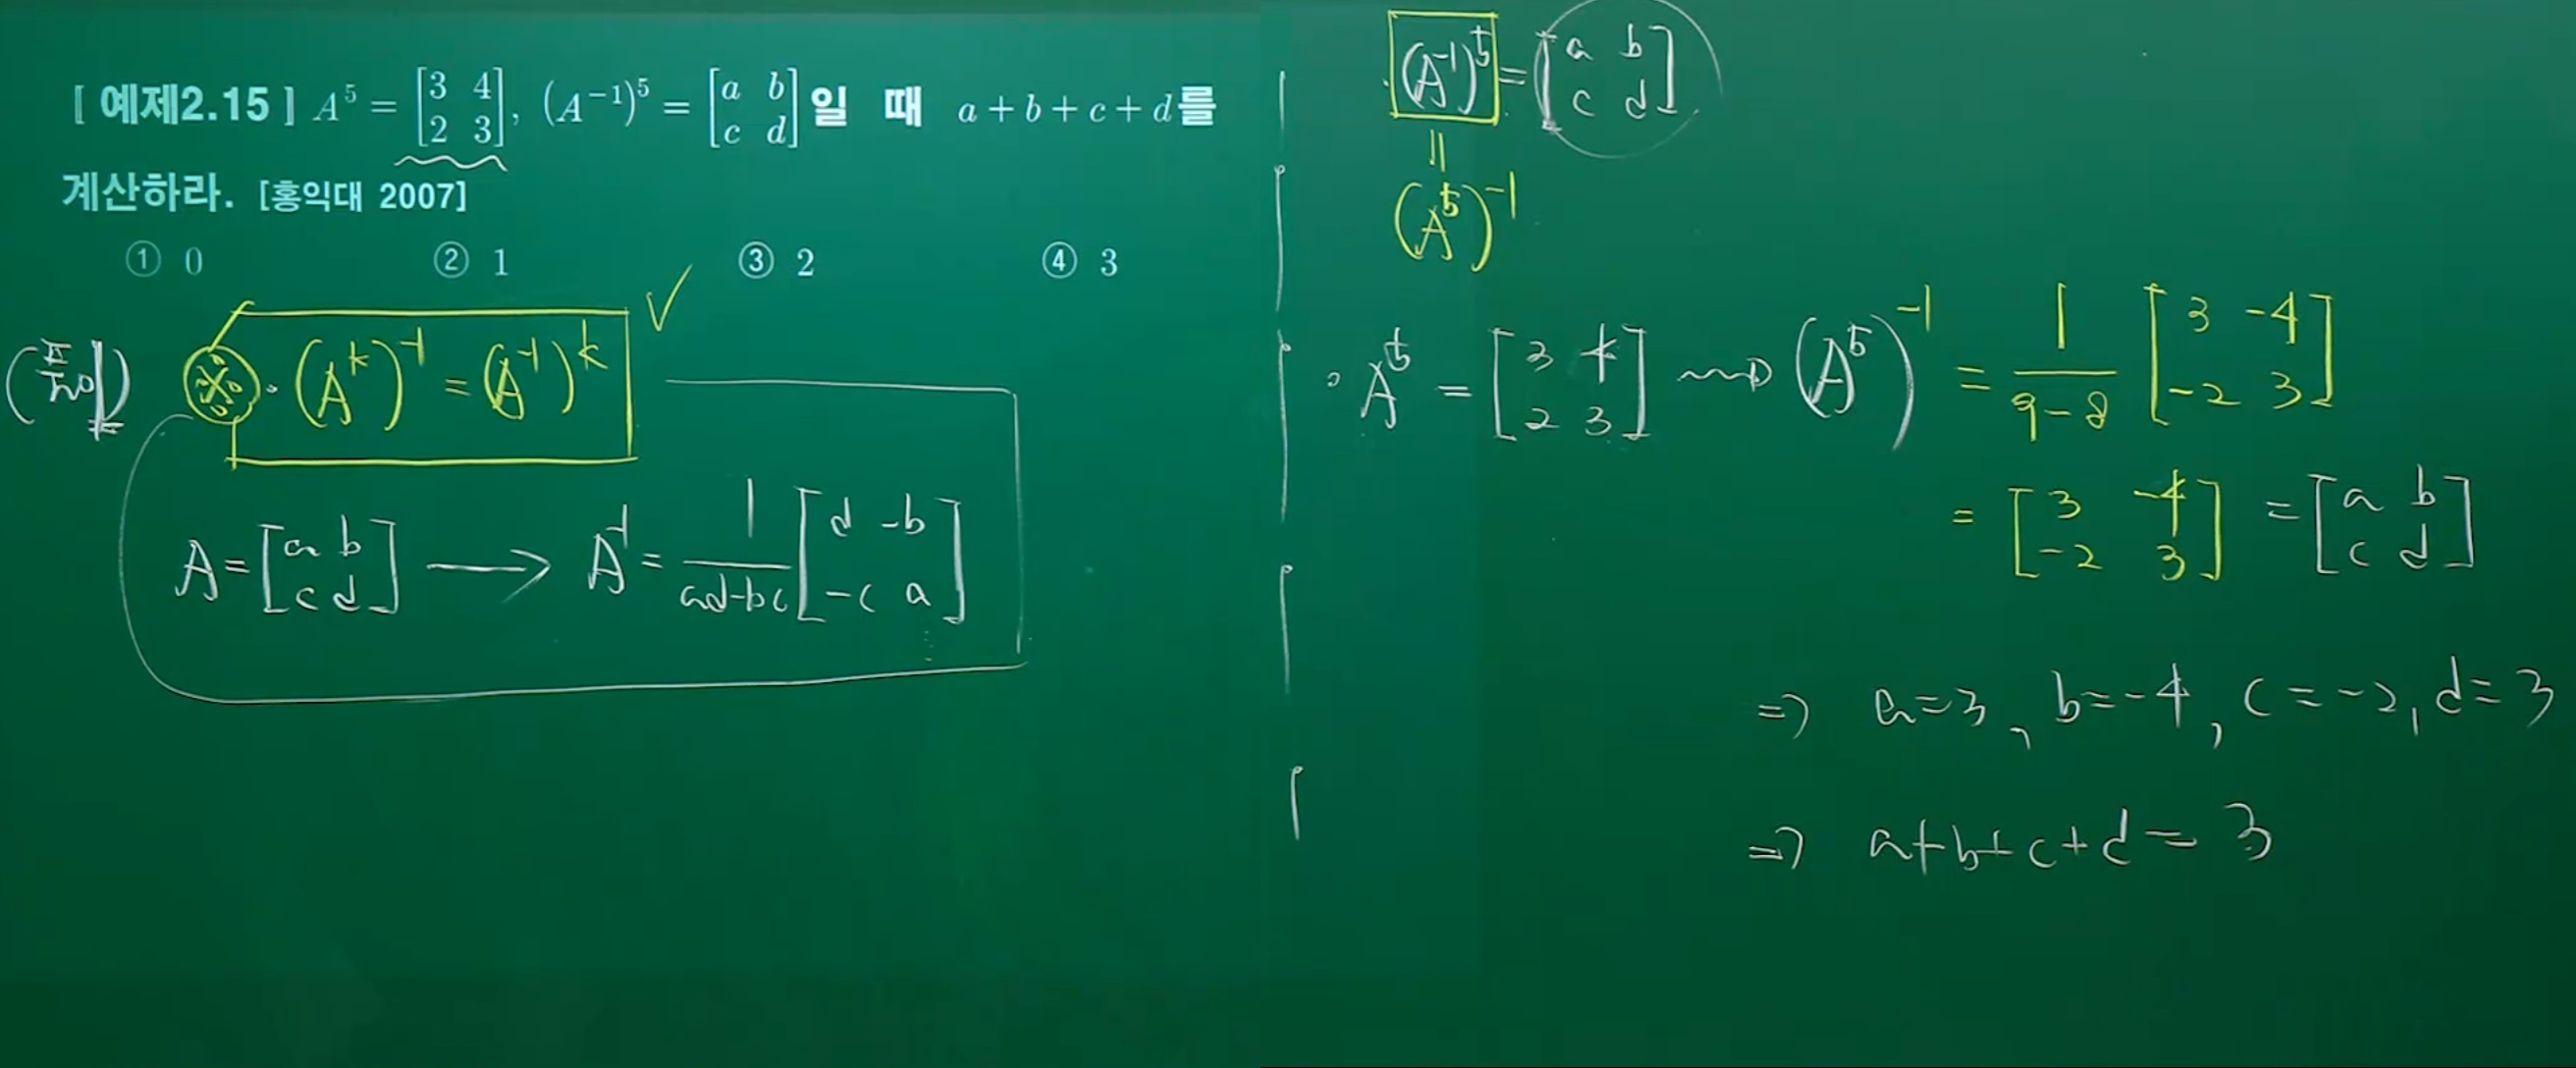 [ 예제2.15 ] A⁵ = [3 4; 2 3], (A⁻¹)⁵ = [a b; c d] 일 때 a+b+c+d를
계산하라. [홍익대 2007]
① 0 ② 1 ③ 2 ④ 3
(풀이) ※ · (Aᵏ)⁻¹ = (A⁻¹)ᵏ ✓
A = [a b; c d] → A⁻¹ = 1/(ad-bc) [d -b; -c a]
· (A⁻¹)⁵ = [a b; c d]
=
(A⁵)⁻¹
∘ A⁵ = [3 4; 2 3] ⇝ (A⁵)⁻¹ = 1/(9-8) [3 -4; -2 3]
= [3 -4; -2 3] = [a b; c d]
⇒ a=3, b=-4, c=-2, d=3
⇒ a+b+c+d = 3